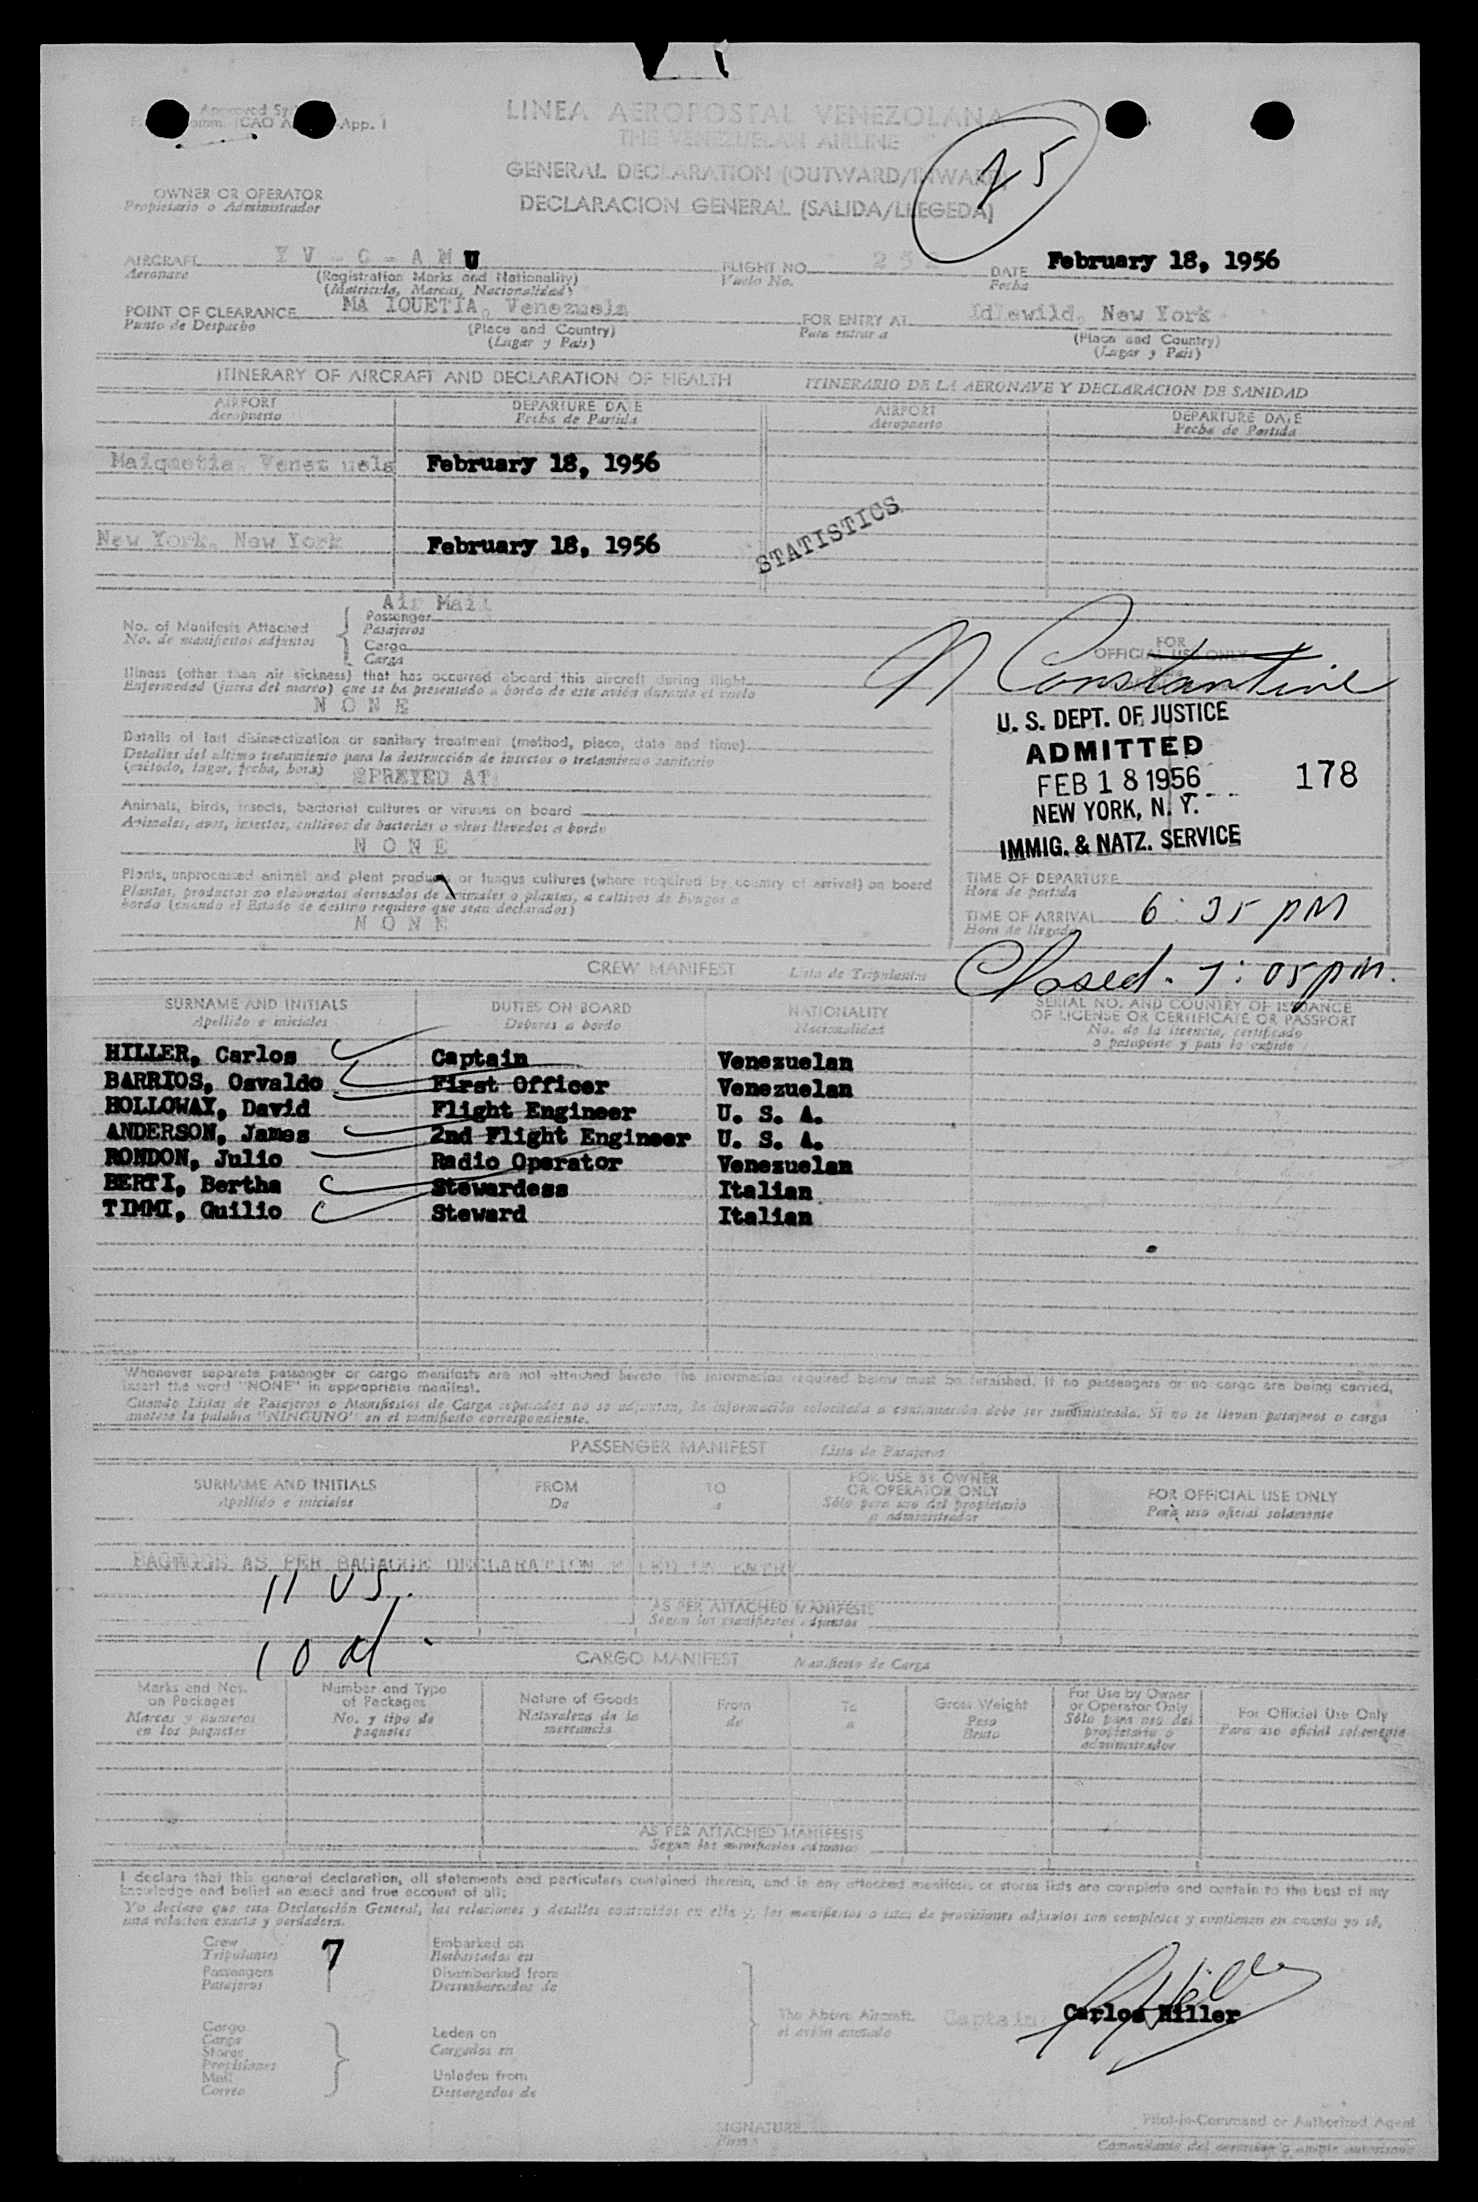 LINEA AEROPOSTAL VENEZOLANA
THE VENEZUELAN AIRLINE
GENERAL DECLARATION (OUTWARD/INWARD)
DECLARACION GENERAL (SALIDA/LLEGEDA)
45
OWNER OR OPERATOR
Propietario o Administrador
AIRCRAFT Y V - C - A M U FLIGHT NO. 252 DATE February 18, 1956
Aeronave (Registration Marks and Nationality) Vuelo No. Fecha
(Matricula, Marcas, Nacionalidad)
POINT OF CLEARANCE MA IQUETIA, Venezuela FOR ENTRY AT Idlewild, New York
Punto de Despacho (Place and Country) Para entrar a (Place and Country)
(Lugar y Pais) (Lugar y Pais)
ITINERARY OF AIRCRAFT AND DECLARATION OF HEALTH ITINERARIO DE LA AERONAVE Y DECLARACION DE SANIDAD
AIRPORT DEPARTURE DATE AIRPORT DEPARTURE DATE
Aeropuerto Fecha de Partida Aeropuerto Fecha de Partida
Maiquetia, Venez uela February 18, 1956
New York, New York February 18, 1956
STATISTICS
Air Mail
No. of Manifests Attached Passenger
No. de manifiestos adjuntos Pasajeros
Cargo
Carga
Illness (other than air sickness) that has occurred aboard this aircraft during flight
Enfermedad (fuera del mareo) que se ha presentado a bordo de este avión durante el vuelo
N O N E
Details of last disinsectization or sanitary treatment (method, place, date and time)
Detalles del ultimo tratamiento para la destrucción de insectos o tratamiento sanitario
(método, lugar, fecha, hora) SPREYED AT
Animals, birds, insects, bacterial cultures or viruses on board
Animales, aves, insectos, cultivos de bacterias o virus llevados a bordo
N O N E
Plants, unprocessed animal and plant products or fungus cultures (where required by country of arrival) on board
Plantas, productos no elaborados derivados de animales o plantas, o cultivos de hongos a
bordo (cuando el Estado de destino requiere que sean declarados)
N O N E
FOR
OFFICIAL USE ONLY
N Constantine
U. S. DEPT. OF JUSTICE
ADMITTED
FEB 18 1956 178
NEW YORK, N. Y.
IMMIG. & NATZ. SERVICE
TIME OF DEPARTURE
Hora de partida
TIME OF ARRIVAL 6:35 PM
Hora de llegada
Closed. 7:05 pm.
CREW MANIFEST Lista de Tripulantes
SURNAME AND INITIALS DUTIES ON BOARD NATIONALITY SERIAL NO. AND COUNTRY OF ISSUANCE
OF LICENSE OR CERTIFICATE OR PASSPORT
Apellido e iniciales Deberes a bordo Nacionalidad No. de la licencia, certificado
o pasaporte y pais lo expide
HILLER, Carlos Captain Venezuelan
BARRIOS, Osvaldo First Officer Venezuelan
HOLLOWAY, David Flight Engineer U. S. A.
ANDERSON, James 2nd Flight Engineer U. S. A.
RONDON, Julio Radio Operator Venezuelan
BERTI, Bertha Stewardess Italian
TIMMI, Guilio Steward Italian
Whenever separate passenger or cargo manifests are not attached hereto, the information required below must be furnished. If no passengers or no cargo are being carried,
insert the word "NONE" in appropriate manifest.
Cuando Listas de Pasajeros o Manifiestos de Carga separados no se adjuntan, la información solicitada a continuación debe ser suministrada. Si no se llevan pasajeros o carga
anotese la palabra "NINGUNO" en el manifiesto correspondiente.
PASSENGER MANIFEST Lista de Pasajeros
SURNAME AND INITIALS FROM TO FOR USE BY OWNER OR OPERATOR ONLY FOR OFFICIAL USE ONLY
Apellido e iniciales De a Sólo para uso del propietario o administrador Para uso oficial solamente
BAGGAGE AS PER BAGAGGE DECLARATION FILED ON ENTRY
11 US.
AS PER ATTACHED MANIFESTS
Segun los manifiestos adjuntos
10 al
CARGO MANIFEST Manifiesto de Carga
Marks and Nos. on Packages Number and Type of Packages Nature of Goods From To Gross Weight For Use by Owner or Operator Only For Official Use Only
Marcas y números en los paquetes No. y tipo de paquetes Naturaleza de la mercancia de a Peso Bruto Sólo para uso del propietario o administrador Para uso oficial solamente
AS PER ATTACHED MANIFESTS
Segun los manifiestos adjuntos
I declare that this general declaration, all statements and particulars contained therein, and in any attached manifests or stores lists are complete and contain to the best of my
knowledge and belief an exact and true account of all;
Yo declaro que esta Declaración General, las relaciones y detalles contenidos en ella y, los manifiestos o listas de provisiones adjuntos son completos y contienen en cuanto yo sé,
una relacion exacta y verdadera.
Crew 7 Embarked on
Tripulantes Embarcados en
Passengers Disembarked from
Pasajeros Desembarcados de
The Above Aircraft. Captain: Carlos Hiller
el avión anotado
Cargo
Carga Laden on
Stores Cargados en
Provisiones
Mail Unladen from
Correo Descargados de
SIGNATURE
Firma
Pilot-in-Command or Authorized Agent